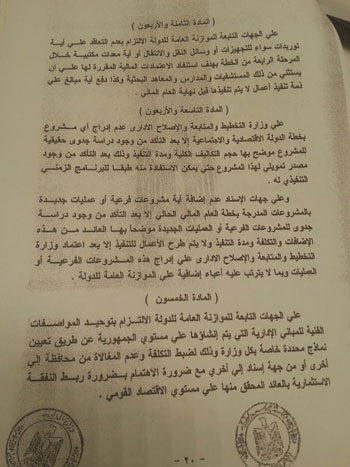 ( المادة الثامنة والأربعون )
علي الجهات التابعة للموازنة العامة للدولة الالتزام بعدم التعاقد علي أية
توريدات سواء للتجهيزات أو وسائل النقل والانتقال أو أية معدات مكتبية خلال
المرحلة الرابعة من الخطة بهدف استنفاد الاعتمادات المالية المقررة لها علي أن
يستثني من ذلك المستشفيات والمدارس والمعاهد البحثية وكذا دفع أية مبالغ علي
ذمة تنفيذ أعمال لا يتم تنفيذها قبل نهاية العام المالي .
( المادة التاسعة والأربعون )
علي وزارة التخطيط والمتابعة والإصلاح الاداري عدم إدراج أي مشروع
بخطة الدولة الاقتصادية والاجتماعية إلا بعد التأكد من وجود دراسة جدوي حقيقية
للمشروع موضح بها حجم التكاليف الكلية ومدة التنفيذ وذلك بعد التأكد من وجود
مصدر تمويلي لهذا المشروع حتي يمكن الاستفادة منه طبقا للبرنامج الزمني
التنفيذي له .
وعلي جهات الإسناد عدم إضافة أية مشروعات فرعية أو عمليات جديدة
بالمشروعات المدرجة بخطة العام المالي الحالي إلا بعد التأكد من وجود دراسة
جدوي للمشروعات الفرعية أو العمليات الجديدة موضحا بها العائد من هذه
الإضافات والتكلفة ومدة التنفيذ ولا يتم طرح الأعمال للتنفيذ إلا بعد اعتماد وزارة
التخطيط والمتابعة والإصلاح الاداري علي إدراج هذه المشروعات الفرعية أو
العمليات وبما لا يترتب عليه أعباء إضافية علي الموازنة العامة للدولة .
( المادة الخمسون )
علي الجهات التابعة للموازنة العامة للدولة الالتزام بتوحيد المواصفات
الفنية للمباني الإدارية التي يتم إنشاؤها علي مستوي الجمهورية عن طريق تعيين
نماذج محددة خاصة بكل وزارة وذلك لضبط التكلفة وعدم المغالاة من محافظة إلي
أخرى أو من جهة إسناد إلي أخري مع ضرورة الاهتمام بضرورة ربط النفقة
الاستثمارية بالعائد المحقق منها علي مستوي الاقتصاد القومي .
- ٢٠ -